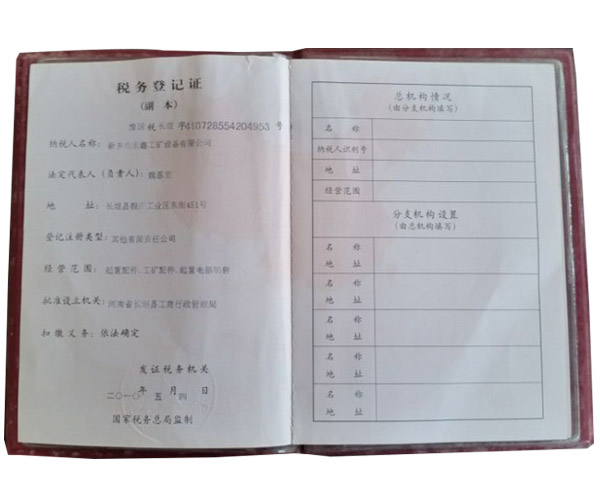 税务登记证
(副 本)
豫国 税 长垣 字410728554204953 号
纳税人名称: 新乡市 工矿设备有限公司
法定代表人(负责人):
地 址: 长垣县魏庄工业区东街451号
登记注册类型: 其他有限责任公司
经 营 范 围: 起重配件、工矿配件、起重电器销售
批准设立机关: 河南省长垣县工商行政管理局
扣 缴 义 务: 依法确定
发 证 税 务 机 关
年 月 日
二〇一〇 五 四
国家税务总局监制
总 机 构 情 况
(由分支机构填写)
名 称
纳税人识别号
地 址
经营范围
分 支 机 构 设 置
(由总机构填写)
名 称
地 址
名 称
地 址
名 称
地 址
名 称
地 址
名 称
地 址